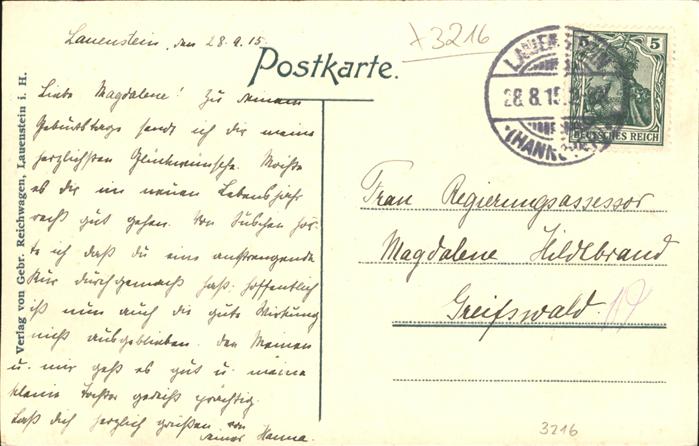 Lauenstein, den 28.9.15.
+3216
Postkarte.
LAUENSTEIN
28.8.15.
(HANNOVER)
5 5
DEUTSCHES REICH
Verlag von Gebr. Reichwagen, Lauenstein i. H.
Liebe Magdalene! Zu Deinem
Geburtstage sende ich dir meine
herzlichsten Glückwünsche. Möchte
es dir im neuen Lebensjahr
recht gut gehen. Von Suschen hör-
te ich daß du eine anstrengende
Kur durchgemacht hast; hoffentlich
ist nun auch die gute Wirkung
nicht ausgeblieben. Den Meinen
u. mir geht es gut u. meine
kleine Tochter gedeiht prächtig.
Laß dich herzlich grüßen von
Deiner Hanna.
Frau Regierungsassessor
Magdalene Hildebrand
Greifswald.
3216